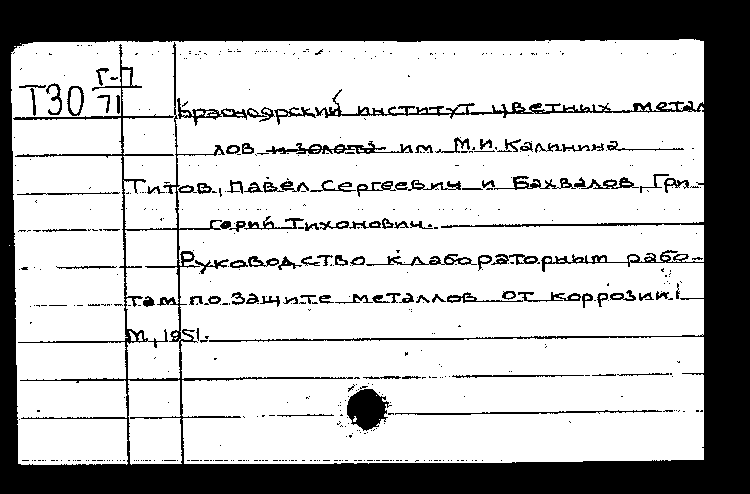 Т30 Г-П
71
Красноярский институт цветных метал
лов и золота им. М.И. Калинина
Титов, Павел Сергеевич и Бахвалов, Гри-
горий Тихонович.
Руководство к лабораторным рабо-
там по защите металлов от коррозии.
М, 1951.